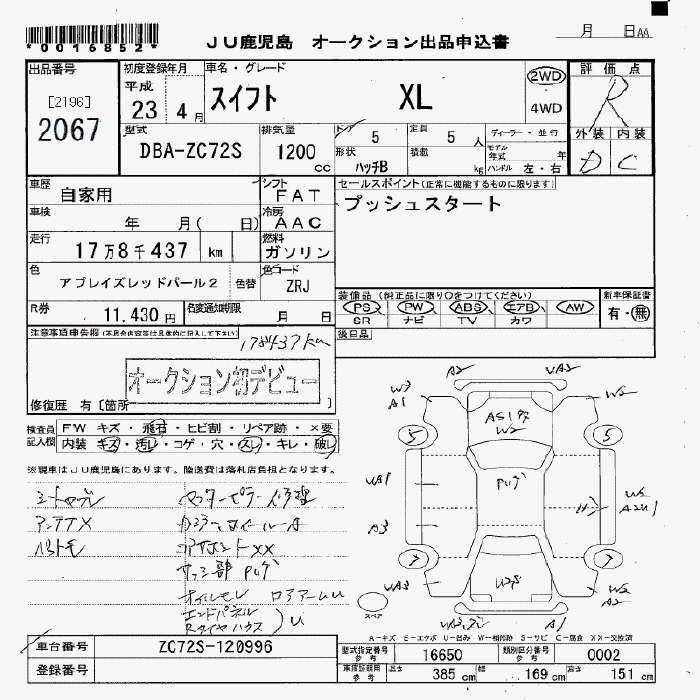 *0016852*
JU鹿児島 オークション出品申込書
月 日AA
出品番号
[2196]
2067
初度登録年月
平成
23 4 月
車名・グレード
スイフト XL
2WD
4WD
評価点
R
外装 内装
D C
型式
DBA-ZC72S
排気量
1200 cc
ドア 5
定員 5 人
形状 ハッチB
積載 kg
ディーラー・並行
モデル年式 年
ハンドル 左・右
車歴
自家用
シフト
FAT
車検
年 月( 日)
冷房
AAC
走行
17万8千437 km
燃料
ガソリン
色
アブレイズレッドパール2
色替
色コード
ZRJ
R券
11,430円
名変通知期限
月 日
セールスポイント(正常に機能するものに限ります)
プッシュスタート
装備品(純正品に限り○をつけてください)
PS PW ABS エアB AW
SR ナビ TV カワ
新車保証書
有・無
後日品
注意事項申告欄(不具合内容等は具体的に記入して下さい)
178437km
オークション初デビュー
修復歴 有[箇所 ]
検査員記入欄
FW キズ・飛石・ヒビ割・リペア跡・×要
内装 キズ・汚レ・コゲ・穴・スレ・キレ・破レ
※現車はJU鹿児島にあります。陸送費は落札店負担となります。
シートヤブレ
アンテナX
オイルモレ ロアアームU
エンドパネル
RタイヤハウスU
A2 UA2
W3 A1 W2
AS1キズ
W2
5 5
UA1
A3
W2
7 7
UA3 W2 A2
A1
スペア
A-キズ E-エクボ U-凹み W-補修跡 S-サビ C-腐食 XX-交換済
車台番号
ZC72S-120996
登録番号
型式指定番号 参考
16650
類別区分番号 参考
0002
車庫証明用 参考
長さ 385 cm 幅 169 cm 高さ 151 cm